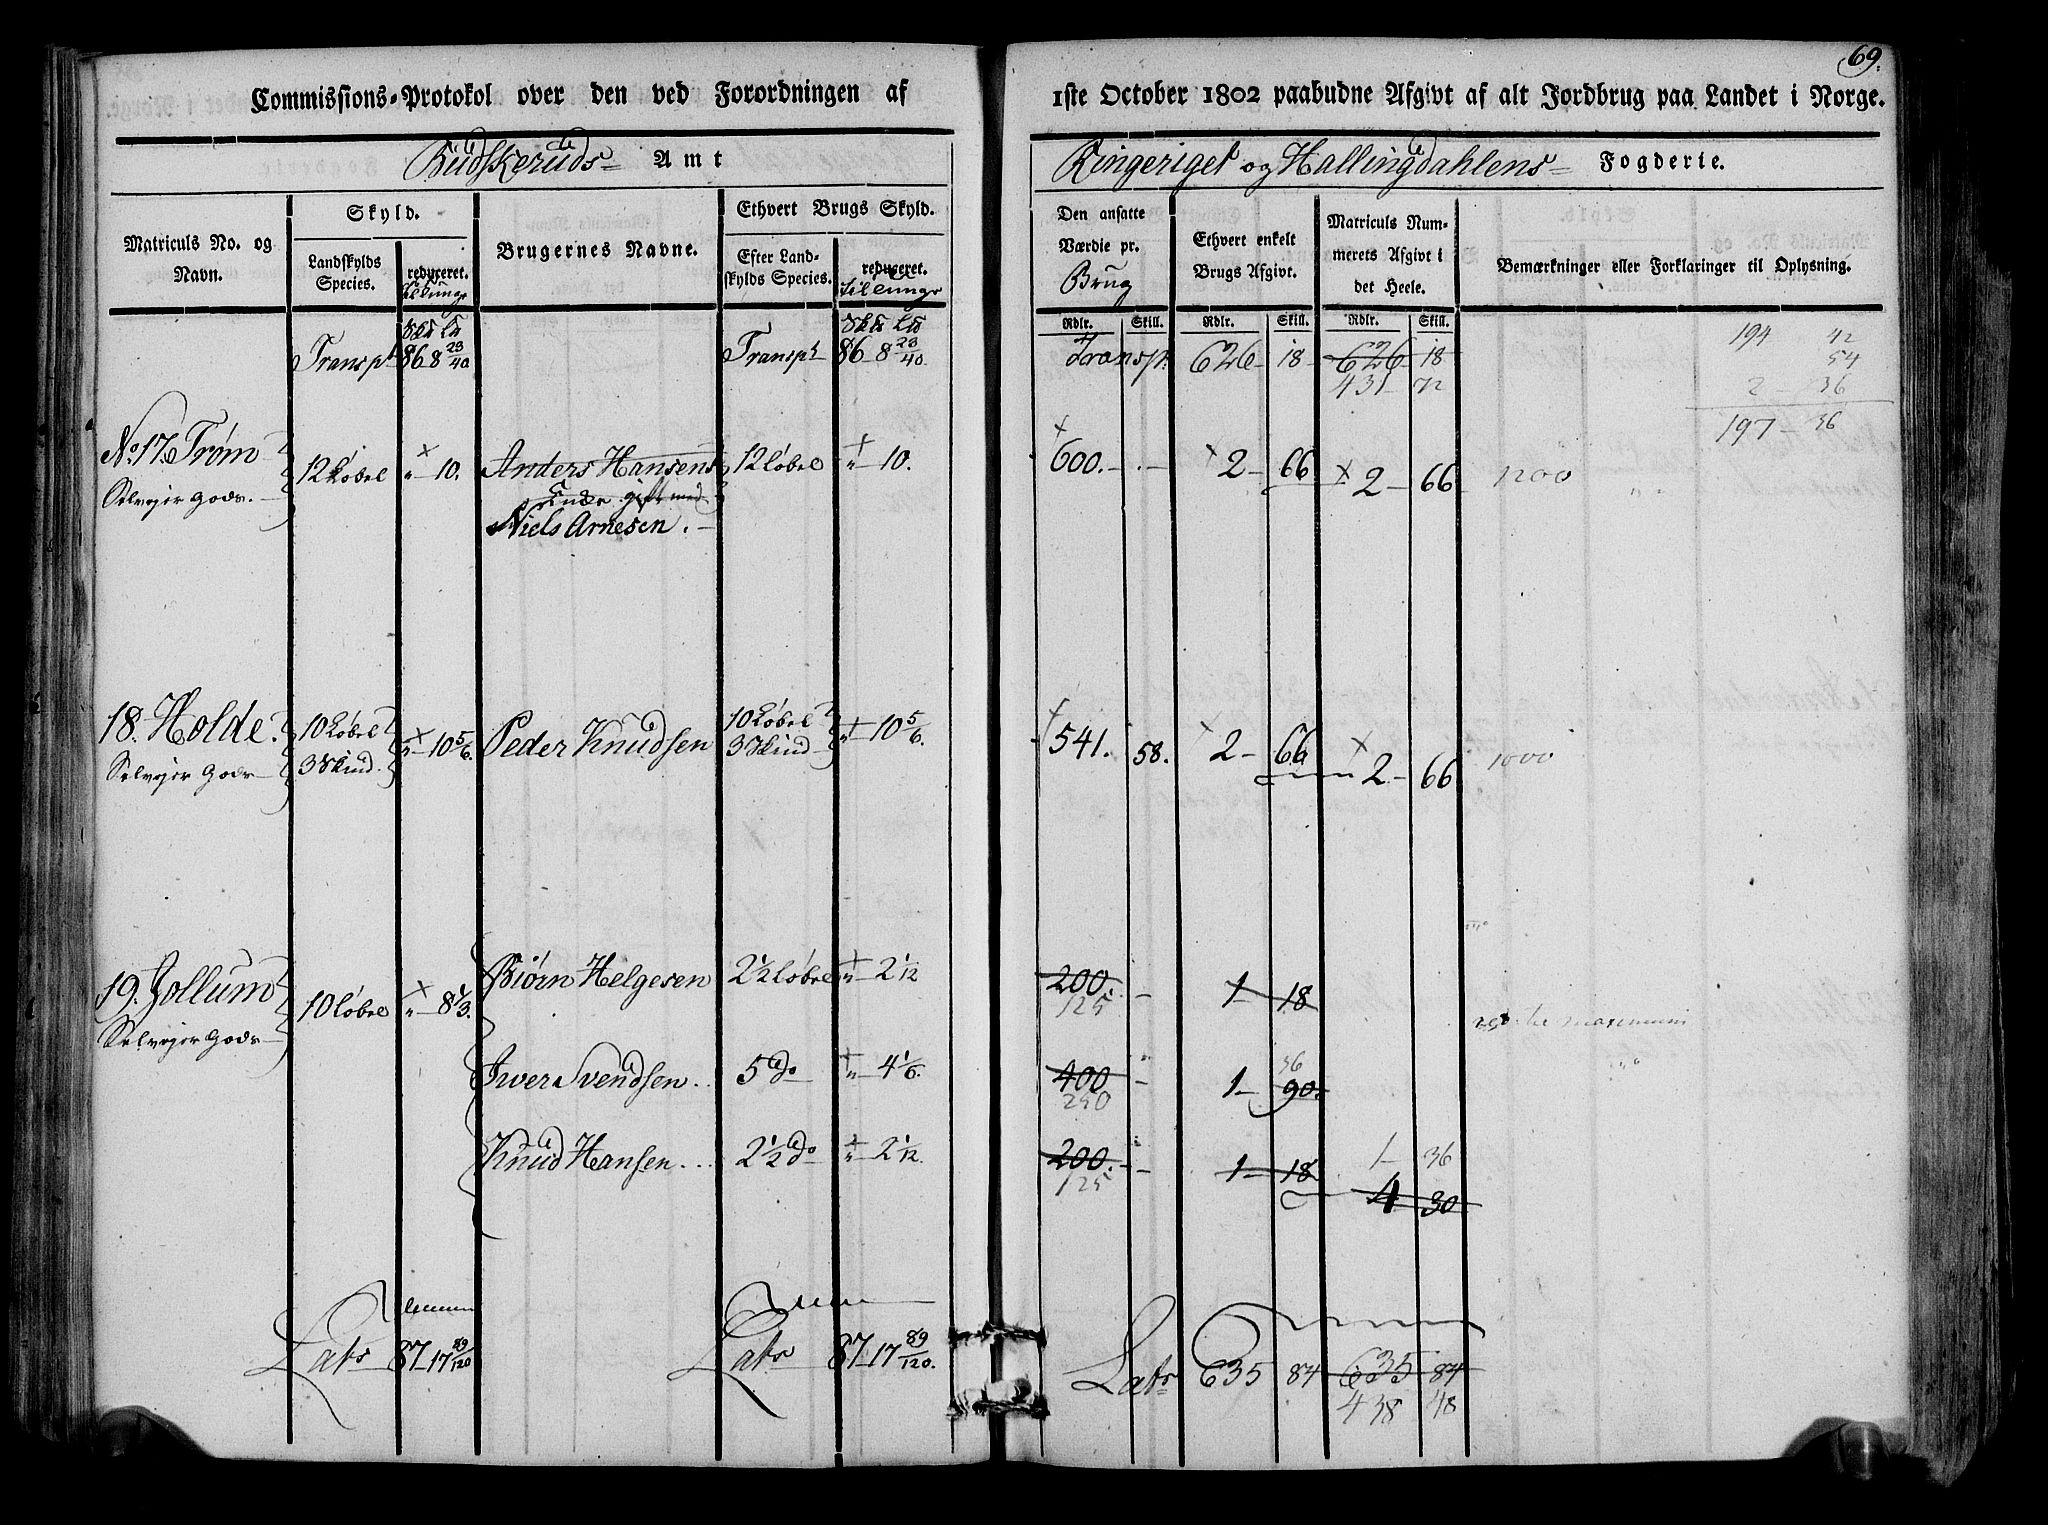 69.
Commissions-Protokol over den ved Forordningen af
1ste October 1802 paabudne Afgivt af alt Jordbrug paa Landet i Norge.
Budskeruds Amt
Ringeriget og Hallingdahlens Fogderie.
Matriculs No. og Navn.
Skyld.
Landskylds Species.
reduceret.
Brugernes Navne.
Ethvert Brugs Skyld.
Efter Landskylds Species.
reduceret.
Den ansatte Værdie pr. Brug
Rdlr. Skill.
Ethvert enkelt Brugs Afgivt.
Rdlr. Skill.
Matriculs Nummerets Afgivt i det Heele.
Rdlr. Skill.
Bemærkninger eller Forklaringer til Oplysning.
Transpt 86 8 23/40 Transpt 86 8 23/40. Transp. 626 18 626 18
431 72
194 42
54
2 36
197 36
No. 17. Trøm 12 Løbel " 10. Anders Hansens 12 Løbel " 10. 600. 2 66 2 66 1200
Selvejer Gods. Enke gift med
Niels Arnesen.
18. Holde. 10 Løbel 3 Skind " 10 5/6. Peder Knudsen 10 Løbel 3 Skind " 10 5/6. 541. 58. 2 66 2 66 1000
Selvejer Gods
19. Jollum 10 Løbel " 8 1/3. Biørn Helgesen 2 1/2 Løbel " 2 1/12 200. 1 18
Selvejer Gods 125
maximum
Iwer Svendsen 5 do " 4 1/6. 400 1 90.
250 36
Knud Hansen 2 1/2 do " 2 1/12. 200. 1 18
125 1 36
4 30
Lats 87 17 89/120 Lats 87 17 89/120. Lats 635 84 635 84
438 48